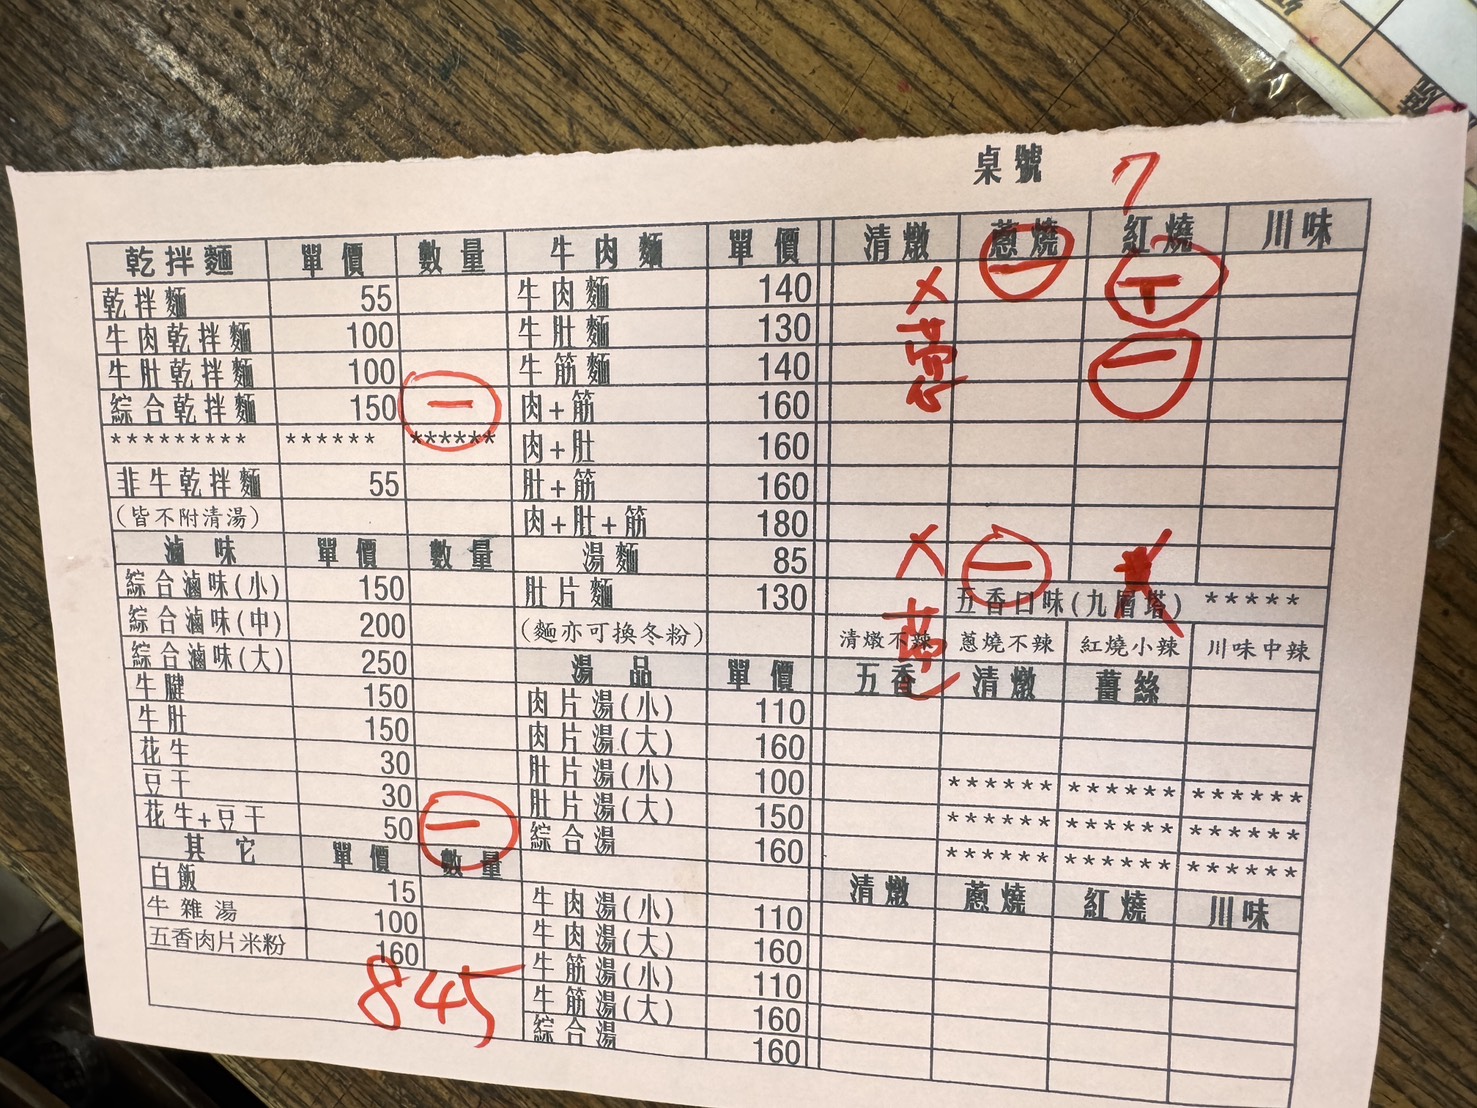 桌號 7
乾拌麵 單價 數量 牛肉麵 單價 清燉 蔥燒 紅燒 川味
乾拌麵 55 牛肉麵 140 X 一 T
牛肉乾拌麵 100 牛肚麵 130
牛肚乾拌麵 100 牛筋麵 140 一
綜合乾拌麵 150 一 肉+筋 160
********* ****** ****** 肉+肚 160
非牛乾拌麵 55 肚+筋 160
(皆不附清湯) 肉+肚+筋 180
滷味 單價 數量 湯麵 85 X 一
綜合滷味(小) 150 肚片麵 130 五香口味(九層塔) *****
綜合滷味(中) 200 (麵亦可換冬粉) 清燉不辣 蔥燒不辣 紅燒小辣 川味中辣
綜合滷味(大) 250 湯品 單價 五香 清燉 薑絲
牛腱 150 肉片湯(小) 110
牛肚 150 肉片湯(大) 160
花生 30 肚片湯(小) 100 ****** ****** ******
豆干 30 肚片湯(大) 150 ****** ****** ******
花生+豆干 50 一 綜合湯 160 ****** ****** ******
其它 單價 數量 清燉 蔥燒 紅燒 川味
白飯 15 牛肉湯(小) 110
牛雜湯 100 牛肉湯(大) 160
五香肉片米粉 160 牛筋湯(小) 110
845 牛筋湯(大) 160
綜合湯 160